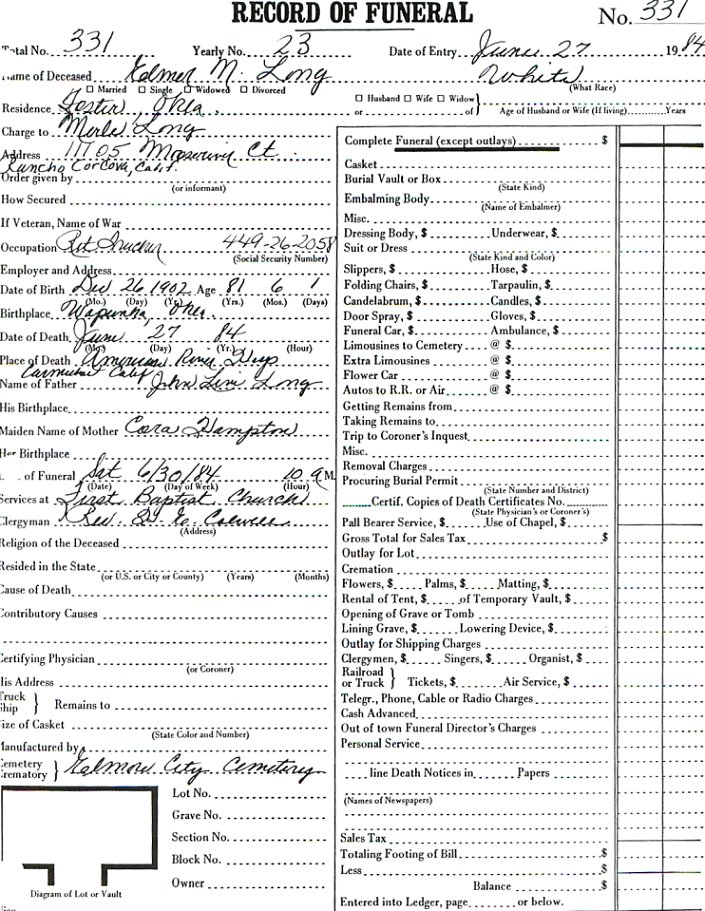 RECORD OF FUNERAL No. 331
Total No. 331 Yearly No. 23 Date of Entry June 27 1984
Name of Deceased Elmer M. Long White
☐ Married ☐ Single ☐ Widowed ☐ Divorced (What Race)
☐ Husband ☐ Wife ☐ Widow
Residence Foster, Okla. or of Age of Husband or Wife (If living) Years
Charge to Merle Long
Address 11705 Ct.
Rancho Cordova, Calif.
Order given by
(or informant)
How Secured
If Veteran, Name of War
Occupation Ret Trucker 449-26-2058
(Social Security Number)
Employer and Address
Date of Birth Dec 26 1902 Age 81 6 1
(Mo.) (Day) (Yr.) (Yrs.) (Mos.) (Days)
Birthplace Wapunka, Okla.
Date of Death June 27 84
(Mo.) (Day) (Yr.) (Hour)
Place of Death American River Hosp
Carmichael Calif
Name of Father John Long
His Birthplace
Maiden Name of Mother Cora Hampton
Her Birthplace
of Funeral Sat 6/30/84 10 A M
(Date) (Day of Week) (Hour)
Services at First Baptist Church
(Address)
Clergyman Rev.
Religion of the Deceased
Resided in the State
(or U.S. or City or County) (Years) (Months)
Cause of Death
Contributory Causes
Certifying Physician
(or Coroner)
His Address
Truck
Ship } Remains to
Size of Casket
(State Color and Number)
Manufactured by
Cemetery
Crematory } Elmore City Cemetery
Lot No.
Grave No.
Section No.
Block No.
Owner
Diagram of Lot or Vault
Complete Funeral (except outlays) $
Casket
Burial Vault or Box
(State Kind)
Embalming Body
(Name of Embalmer)
Misc.
Dressing Body, $ Underwear, $
Suit or Dress
(State Kind and Color)
Slippers, $ Hose, $
Folding Chairs, $ Tarpaulin, $
Candelabrum, $ Candles, $
Door Spray, $ Gloves, $
Funeral Car, $ Ambulance, $
Limousines to Cemetery @ $
Extra Limousines @ $
Flower Car @ $
Autos to R.R. or Air @ $
Getting Remains from
Taking Remains to
Trip to Coroner's Inquest
Misc.
Removal Charges
Procuring Burial Permit
(State Number and District)
Certif. Copies of Death Certificates No.
(State Physician's or Coroner's)
Pall Bearer Service, $ Use of Chapel, $
Gross Total for Sales Tax $
Outlay for Lot
Cremation
Flowers, $ Palms, $ Matting, $
Rental of Tent, $ of Temporary Vault, $
Opening of Grave or Tomb
Lining Grave, $ Lowering Device, $
Outlay for Shipping Charges
Clergymen, $ Singers, $ Organist, $
Railroad
or Truck } Tickets, $ Air Service, $
Telegr., Phone, Cable or Radio Charges
Cash Advanced
Out of town Funeral Director's Charges
Personal Service
line Death Notices in Papers
(Names of Newspapers)
Sales Tax
Totaling Footing of Bill $
Less $
Balance $
Entered into Ledger, page or below.